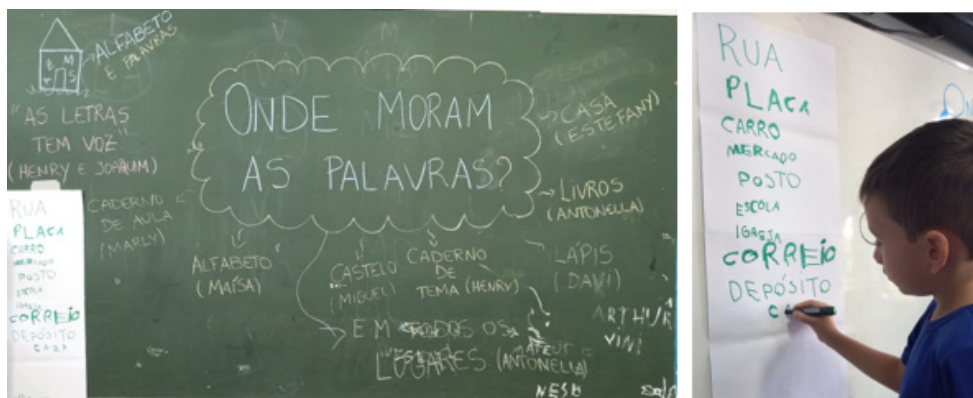 ALFABETO
E PALAVRAS
"AS LETRAS
TEM VOZ"
(HENRY E JOAQUIM)
ONDE MORAM
AS PALAVRAS?
CASA
(ESTEFANY)
LIVROS
(ANTONELLA)
LÁPIS
(DAVI)
CADERNO
DE AULA
(MARLY)
ALFABETO
(MAÍSA)
CASTELO
(MIGUEL)
CADERNO
DE
TEMA (HENRY)
EM TODOS OS
LUGARES (ANTONELLA)
ARTHUR
VINI
RUA
PLACA
CARRO
MERCADO
POSTO
ESCOLA
CORREIO
DEPÓSITO
RUA
PLACA
CARRO
MERCADO
POSTO
ESCOLA
IGREJA
CORREIO
DEPÓSITO
CA